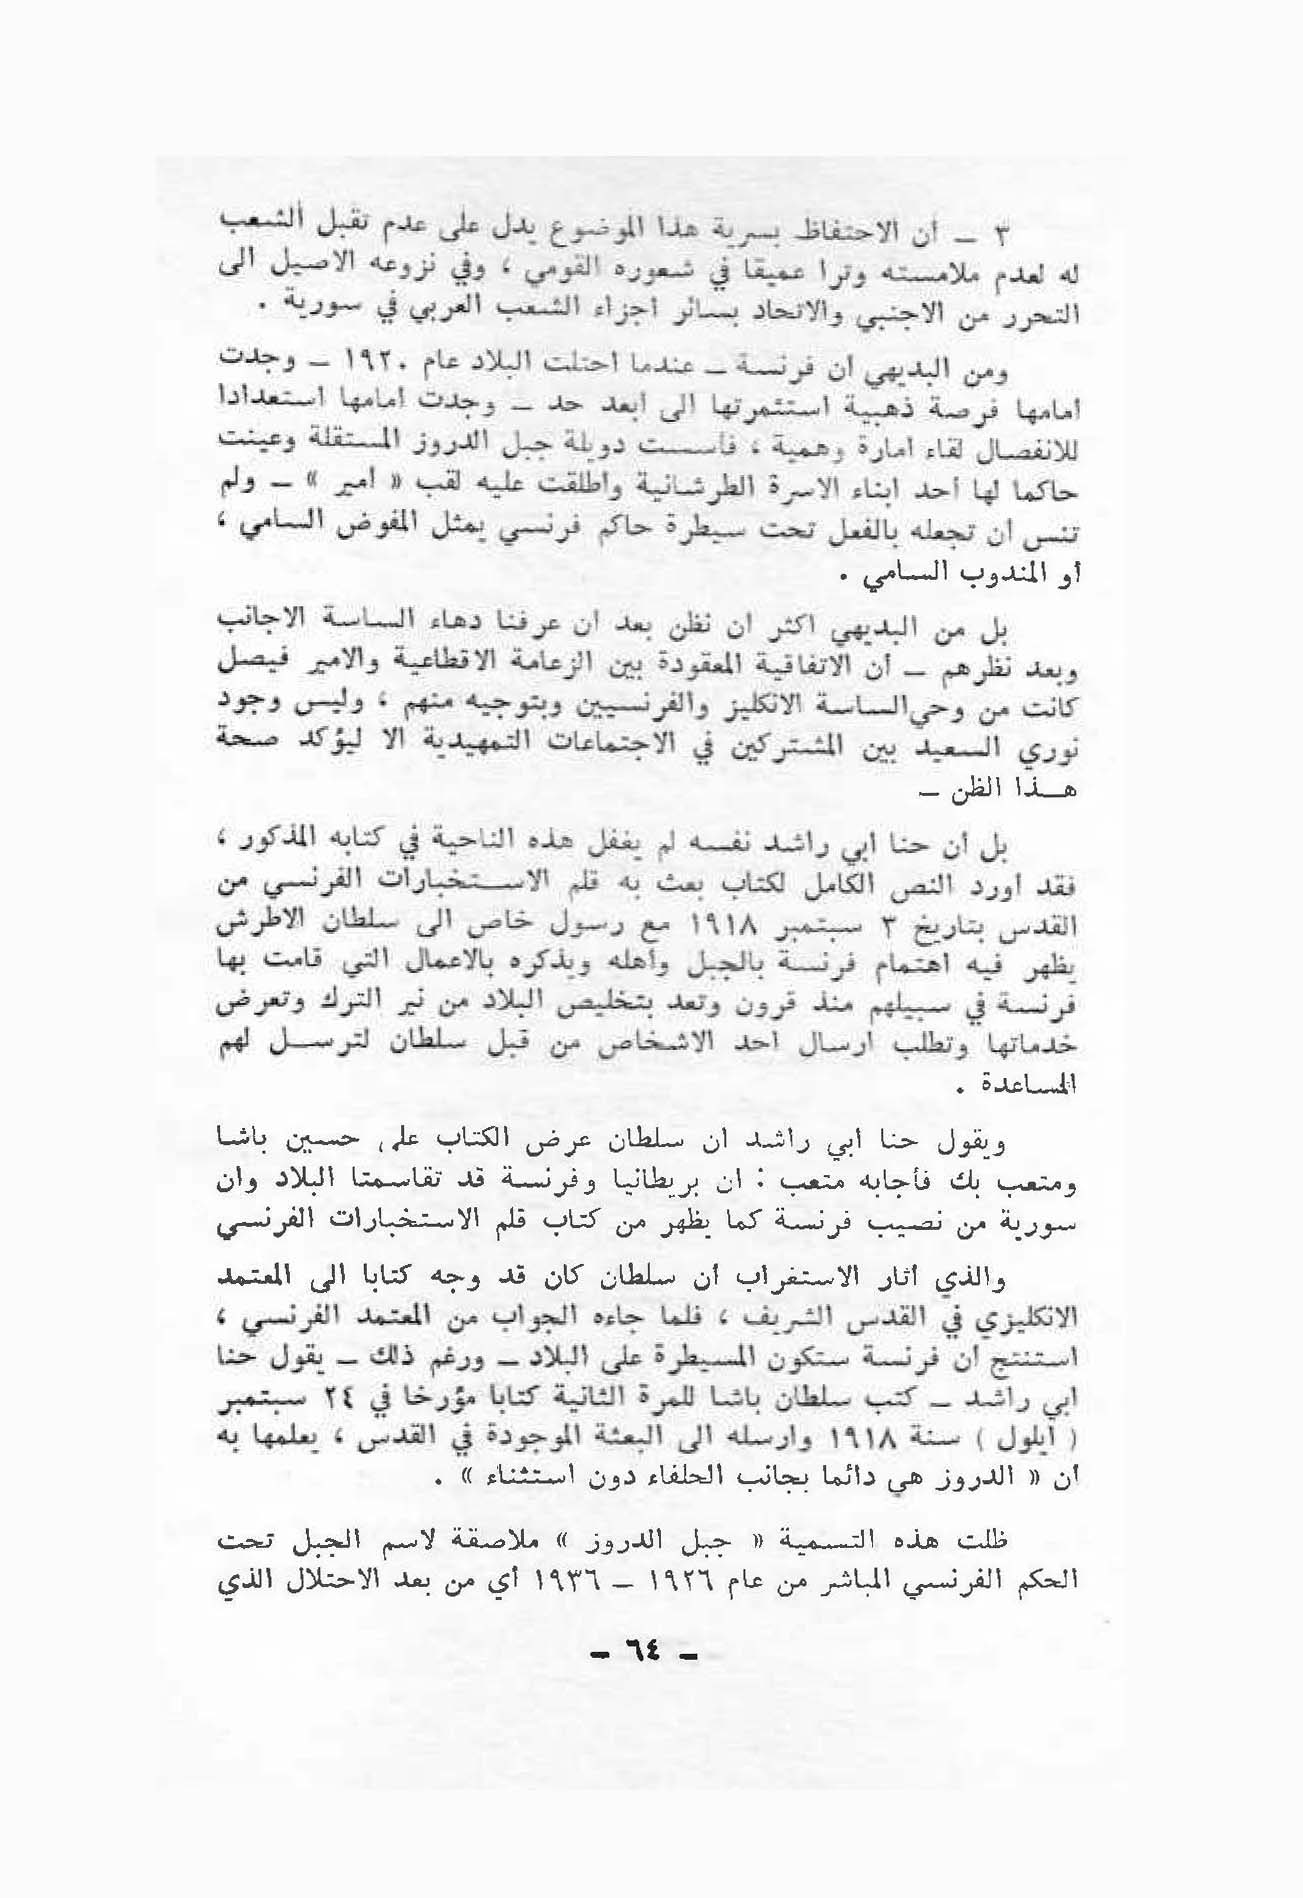 ٣ ــ أن الاحتفاظ بسرية هذا الموضوع يدل على عدم تقبل ألشعب
له لعدم ملامسته وترا عميقا في شعوره القومي ، وفي نزوعه الاصيل الى
التحرر من الاجنبي والاتحاد بسائر اجزاء الشعب العربي في سورية .
ومن البديهي ان فرنسة ــ عندما احتلت البلاد عام ١٩٢٠ ــ وجدت
أمامها فرصة ذهبية استثمرتها الى أبعد حد ــ وجدت امامها استعدادا
للانفصال لقاء امارة وهمية ، فأسست دويلة جبل الدروز المستقلة وعينت
حاكما لها أحد ابناء الاسرة الطرشانية وأطلقت عليه لقب « امير » ــ ولم
تنس ان تجعله بالفعل تحت سيطرة حاكم فرنسي يمثل المفوض السامي ،
أو المندوب السامي .
بل من البديهي اكثر ان نظن بعد ان عرفنا دهاء الساسة الاجانب
وبعد نظرهم ــ أن الاتفاقية المعقودة بين الزعامة الاقطاعية والامير فيصل
كانت من وحي الساسة الانكليز والفرنسيين وبتوجيه منهم ، وليس وجود
نوري السعيد بين المشتركين في الاجتماعات التمهيدية الا ليؤكد صحة
هــذا الظن ــ
بل أن حنا ابي راشد نفسه لم يغفل هذه الناحية في كتابه المذكور ،
فقد اورد النص الكامل لكتاب بعث به قلم الاســتخبارات الفرنسي من
القدس بتاريخ ٣ سبتمبر ١٩١٨ مع رسول خاص الى سلطان الاطرش
يظهر فيه اهتمام فرنسة بالجبل وأهله ويذكره بالاعمال التي قامت بها
فرنسة في سبيلهم منذ قرون وتعد بتخليص البلاد من نير الترك وتعرض
خدماتها وتطلب ارسال احد الاشخاص من قبل سلطان لترســل لهم
المساعدة .
ويقول حنا ابي راشد ان سلطان عرض الكتاب على حسين باشا
ومتعب بك فأجابه متعب : ان بريطانيا وفرنسة قد تقاسمتا البلاد وان
سورية من نصيب فرنسة كما يظهر من كتاب قلم الاستخبارات الفرنسي
والذي أثار الاستغراب أن سلطان كان قد وجه كتابا الى المعتمد
الانكليزي في القدس الشريف ، فلما جاءه الجواب من المعتمد الفرنسي ،
استنتج ان فرنسة ستكون المسيطرة على البلاد ــ ورغم ذلك ــ يقول حنا
ابي راشد ــ كتب سلطان باشا للمرة الثانية كتابا مؤرخا في ٢٤ سبتمبر
( أيلول ) سنة ١٩١٨ وارسله الى البعثة الموجودة في القدس ، يعلمها به
أن « الدروز هي دائما بجانب الحلفاء دون استثناء » .
ظلت هذه التسمية « جبل الدروز » ملاصقة لاسم الجبل تحت
الحكم الفرنسي المباشر من عام ١٩٢٦ ــ ١٩٣٦ أي من بعد الاحتلال الذي
ــ ٦٤ ــ